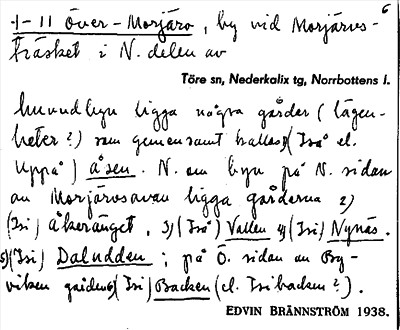 -|- 11 Över-Morjärv, by vid Morjärvs- 6
träsket i N. delen av
Töre sn, Nederkalix tg, Norrbottens l.
huvudbyn ligga några gårder (lägen-
heter?) som gemensamt kallas 1) (Iså el.
Uppå) åsen. N. om byn på N. sidan
av Morjärvsavan ligga gårderna 2)
(Isi) åkeränget, 3) (Iså) Vallen 4) (Isi) Nynäs.
5) (Isi) Daludden; på Ö. sidan av By-
viken gården 6) (Isi) Backen (el. Isibacken?).
EDVIN BRÄNNSTRÖM 1938.